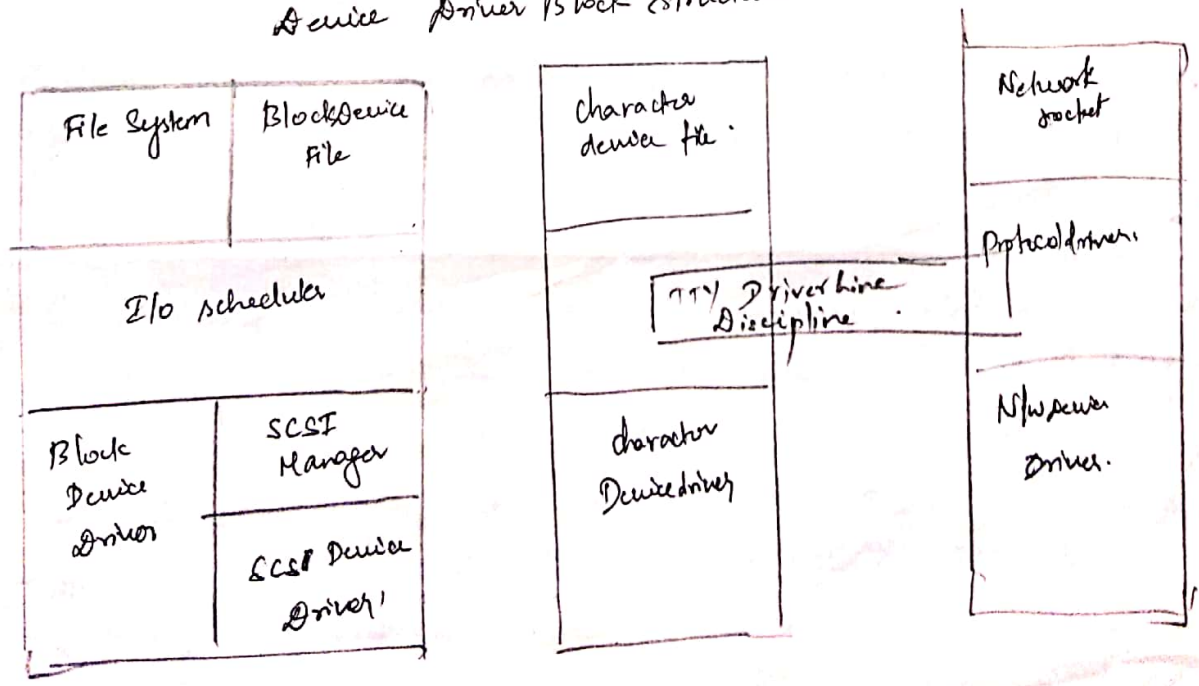 Device Driver Block
File System
BlockDevice
File
I/o scheduler
Block
Device
Driver
SCSI
Manager
SCSI Device
Driver
character
device file.
TTY Driver Line
Discipline.
character
Devicedriver
Network
socket
Protocoldriver.
N/w Device
Driver.